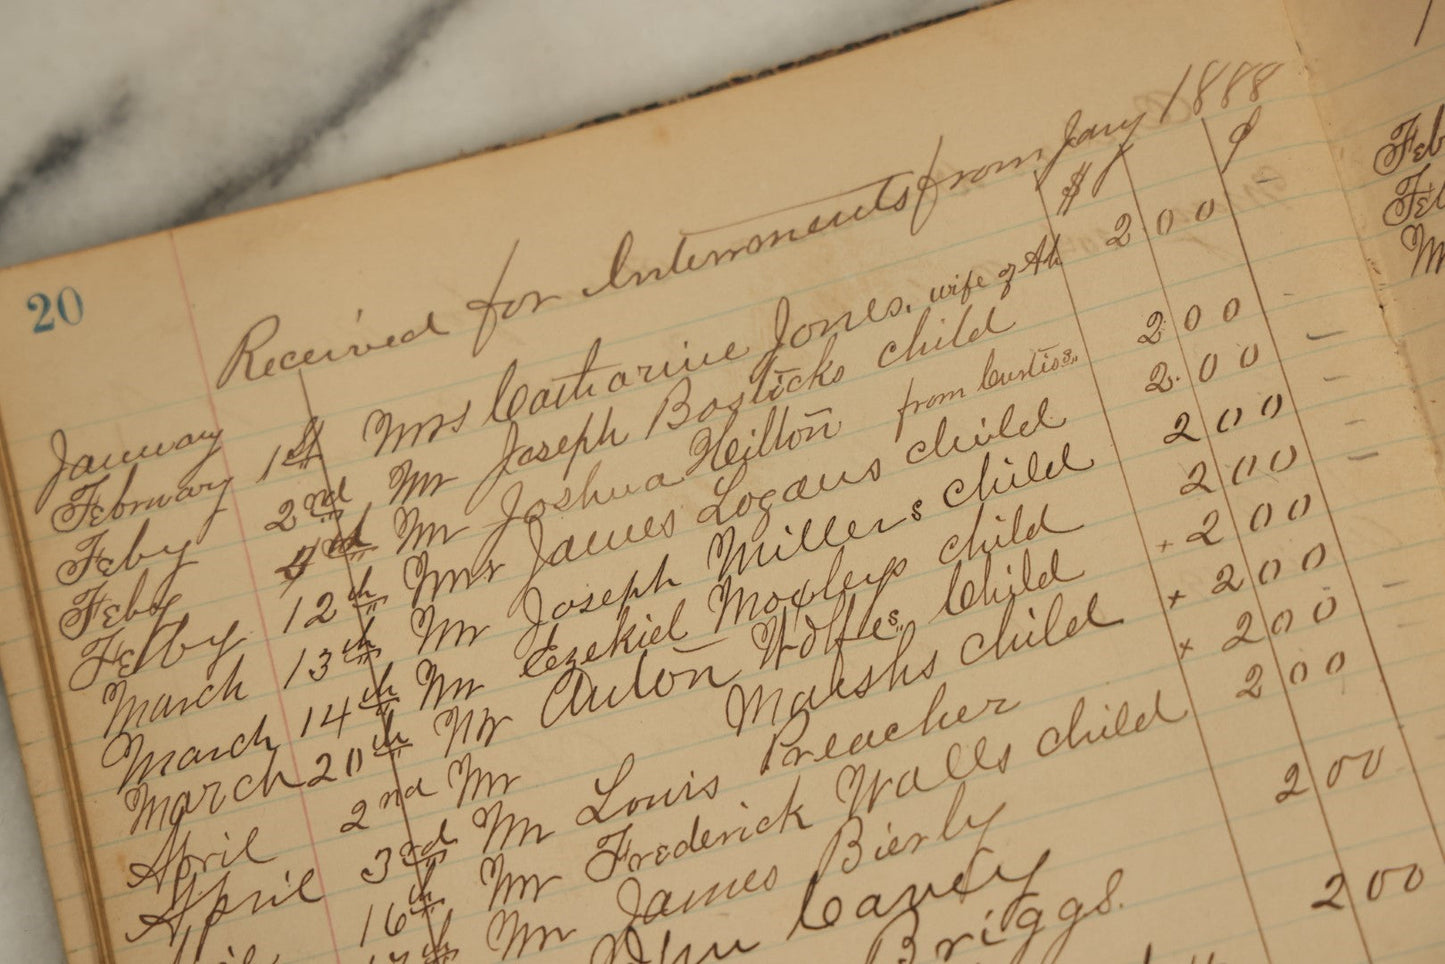 20
Received for Interments from Jany 1888
$ ¢
January
February 1st Mrs Catharine Jones, wife of Ah 2 00
Feby 2nd Mr Joseph Bosticks child
Feby 3rd Mr Joshua Hilton from Curtiss. 2 00
Feby 12th Mr James Logans child 2 00
March 13th Mr Joseph Millers child 2 00
March 14th Mr Ezekiel Moxleys child 2 00
March 20th Mr Anton Wolfes. Child + 2 00
April 2nd Mr Marshs child + 2 00
April 3rd Mr Louis Preacher × 2 00
16th Mr Frederick Walls child 2 00
17th Mr James Bierly
2 00
Briggs.
2 00
Feb
Feb
M